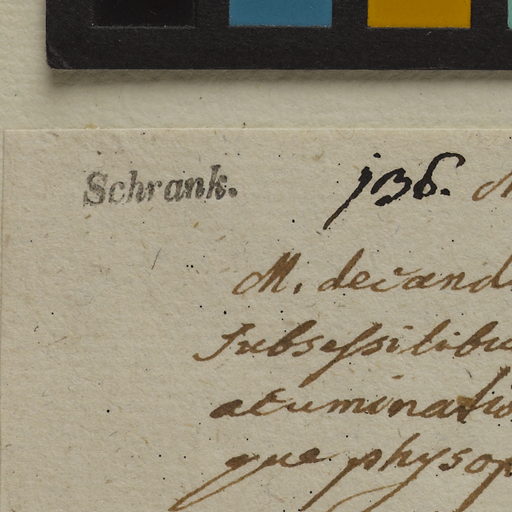 Schrank. 136. M
M. decand
Subsessilibu
acuminatis
que physop